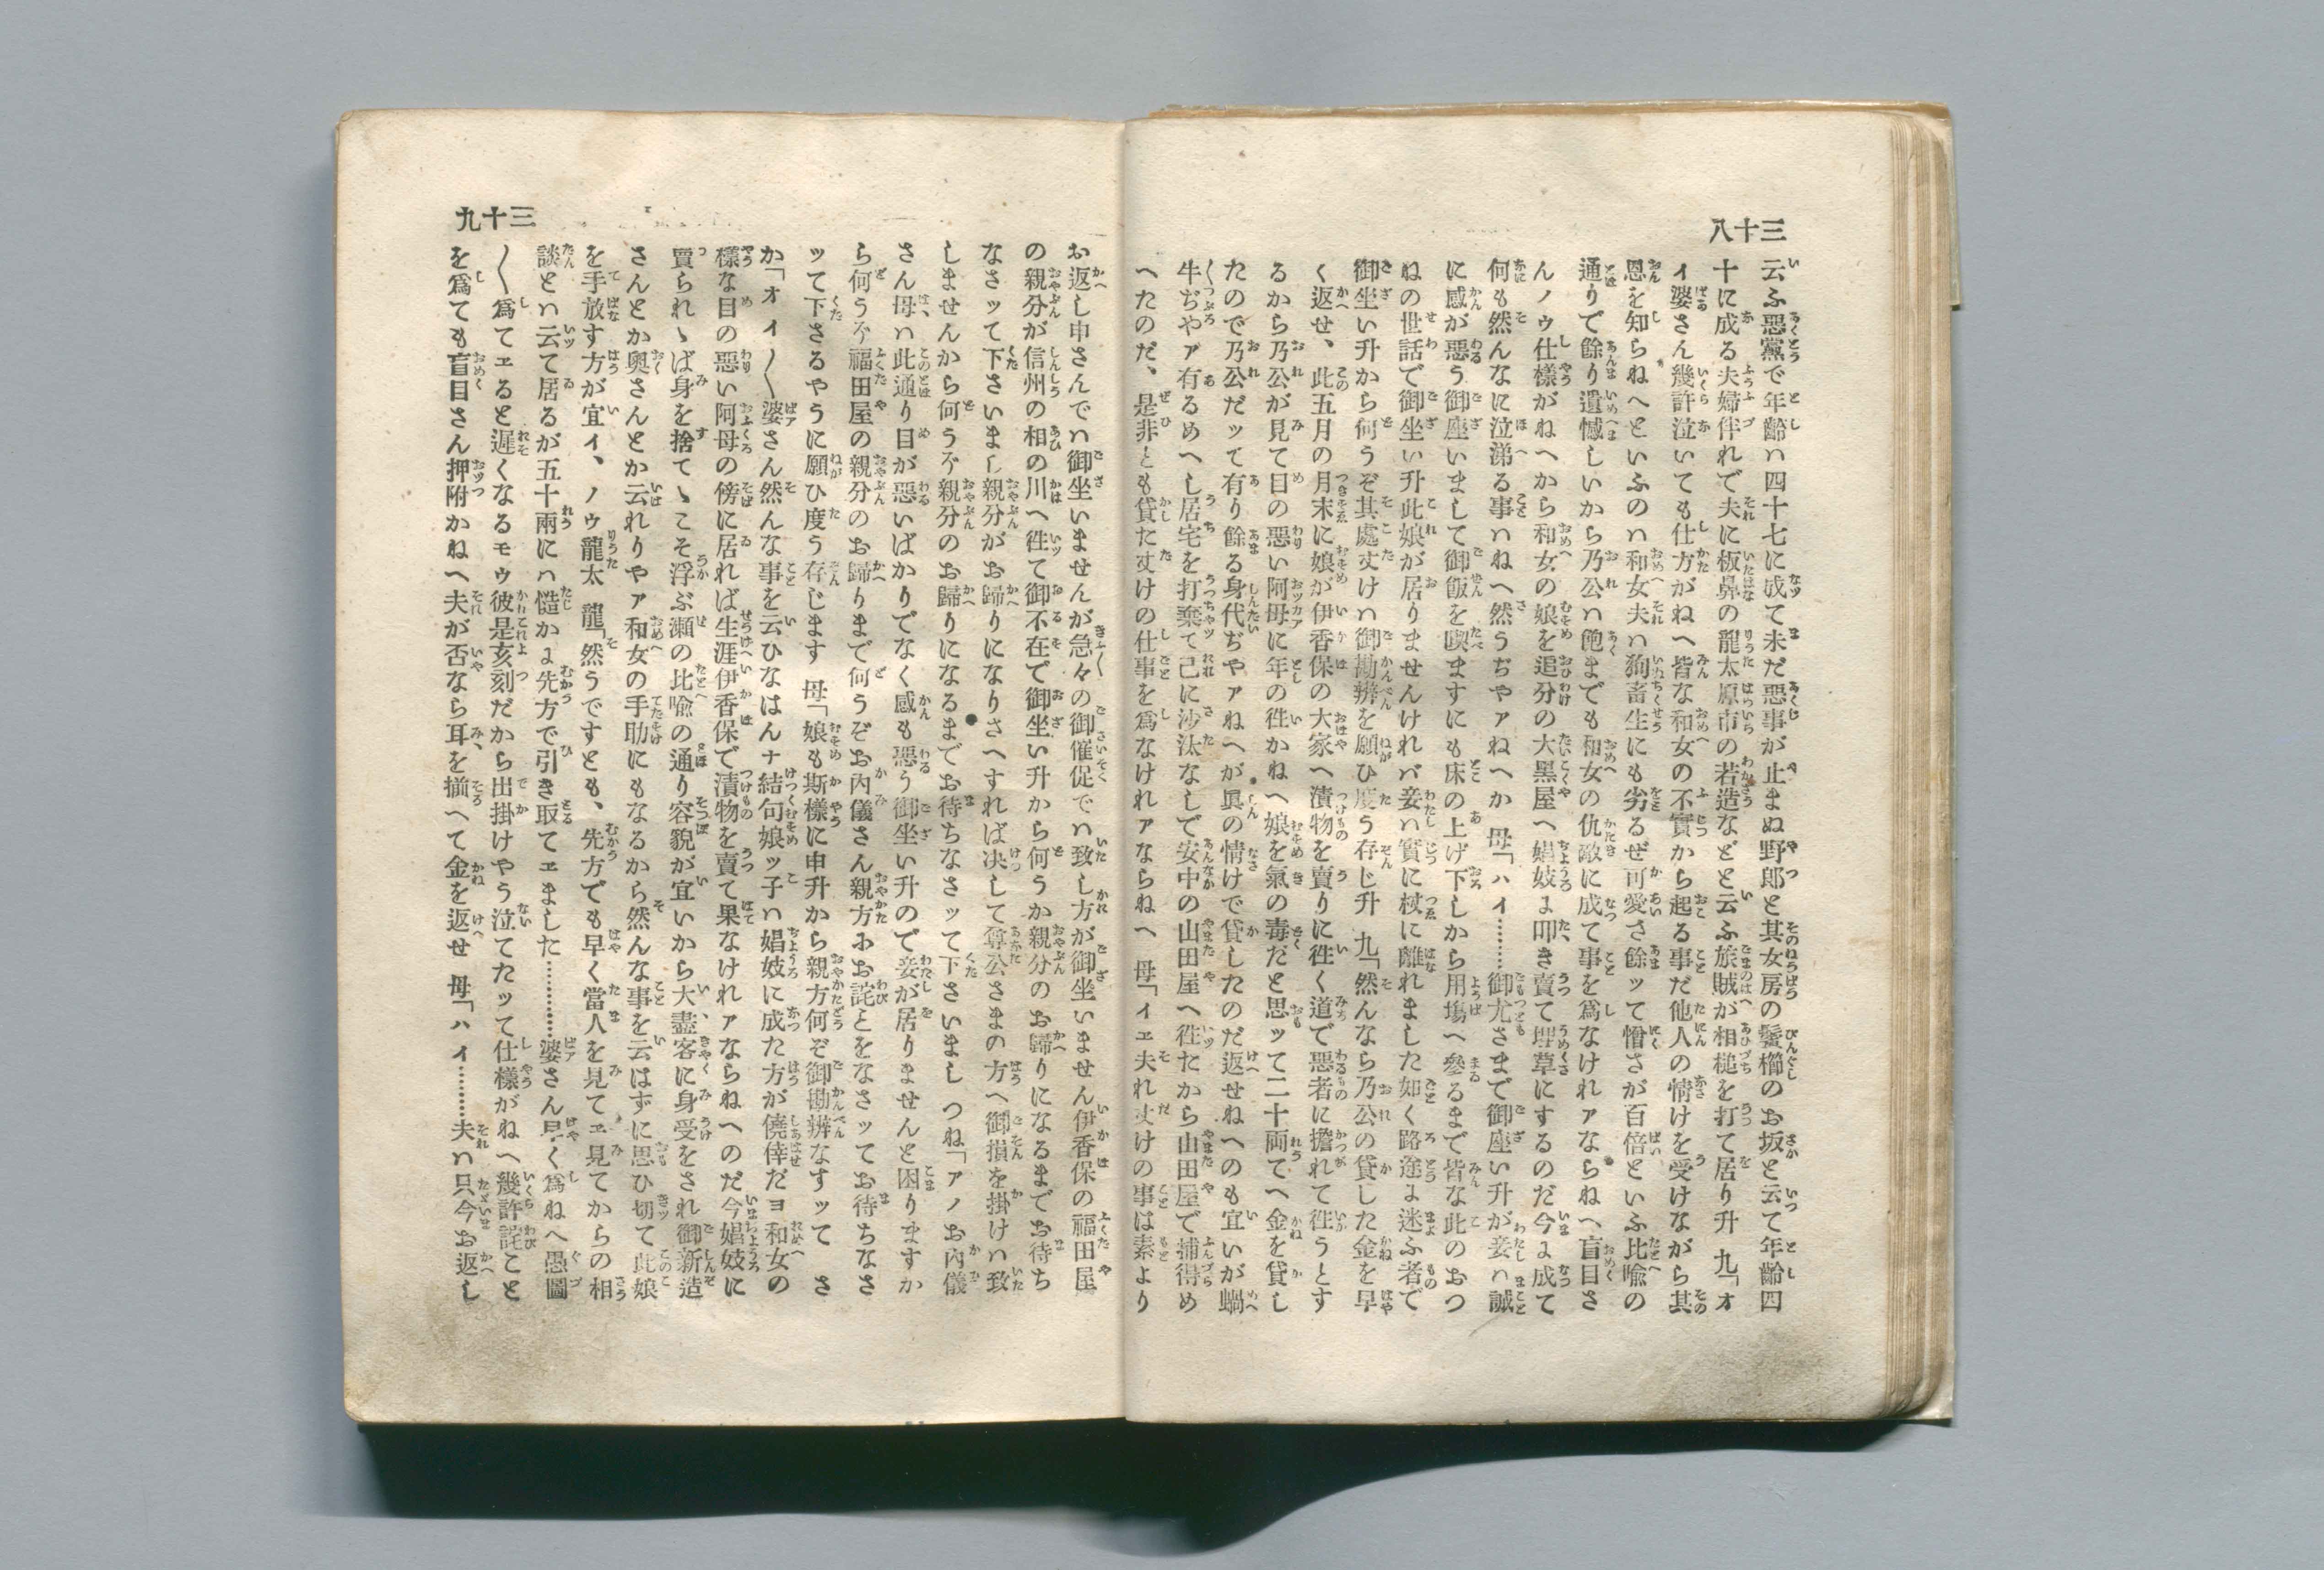 三十八
云ふ惡黨で年齡ハ四十七に成て未だ惡事が止まぬ野郎と其女房の鬢櫛のお坂と云て年齡四
十に成る夫婦伴れで夫に板鼻の龍太原市の若造などと云ふ旅賊が相槌を打て居り升　九「オ
イ婆さん幾許泣いても仕方がねへ皆な和女の不實から起る事だ他人の情けを受けながら其
恩を知らねへといふのハ和女夫ハ狗畜生にも劣るぜ可愛さ餘ッて憎さが百倍といふ比喩の
通りで餘り遺憾しいから乃公ハ飽までも和女の仇敵に成て事を爲なけれァならねへ盲目さ
んノゥ仕樣がねへから和女の娘を追分の大黑屋へ娼妓ま叩き賣て埋草にするのだ今ま成て
何も然んなに泣涕る事ハねへ然うぢやァねへか　母「ハイ………御尤さまで御座い升が妾ハ誠
に感が惡う御座いまして御飯を喫ますにも床の上げ下しから用塲へ參るまで皆な此のおつ
ねの世話で御坐い升此娘が居りませんけれバ妾ハ實に杖に離れました如く路途ま迷ふ者で
御坐い升から何うぞ其處丈けハ御勘辨を願ひ度う存じ升　九「然んなら乃公の貸した金を早
く返せ、此五月の月末に娘が伊香保の大家へ漬物を賣りに徃く道で惡者に擔れて徃うとす
るから乃公が見て目の惡い阿母に年の徃かねへ娘を氣の毒だと思ッて二十両てへ金を貸し
たので乃公だッて有り餘る身代ぢやァねへが眞の情けで貸したのだ返せねへのも宜いが蝸
牛ぢやァ有るめへし居宅を打棄て己に沙汰なしで安中の山田屋へ徃たから山田屋で捕得め
へたのだ、是非とも貸た丈けの仕事を爲なけれァならねへ　母「イヱ夫れ丈けの事は素より
三十九
お返し申さんでハ御坐いませんが急々の御催促でハ致し方が御坐いません伊香保の福田屋
の親分が信州の相の川へ徃て御不在で御坐い升から何うか親分のお歸りになるまでお待ち
なさッて下さいまし親分がお歸りになりさへすれば决して尊公さまの方へ御損を掛けハ致
しませんから何うぞ親分のお歸りになるまでお待ちなさッて下さいまし　つね「アノお內儀
さん母ハ此通り目が惡いばかりでなく感も惡う御坐い升ので妾が居りませんと困りますか
ら何うぞ福田屋の親分のお歸りまで何うぞお內儀さん親方ゟお詫とをなさッてお待ちなさ
ッて下さるやうに願ひ度う存じます　母「娘も斯樣に申升から親方何ぞ御勘辨なすッて　さ
か「オイ〱婆さん然んな事を云ひなはんナ結句娘ッ子ハ娼妓に成た方が僥倖だヨ和女の
樣な目の惡い阿母の傍に居れば生涯伊香保で漬物を賣て果なけれァならねへのだ今娼妓に
賣られゝば身を捨てゝこそ浮ぶ瀨の比喩の通り容貌が宜いから大盡客に身受をされ御新造
さんとか奧さんとか云れりやァ和女の手助にもなるから然んな事を云はずに思ひ切て此娘
を手放す方が宜イ、ノゥ龍太　龍「然うですとも、先方でも早く當人を見てヱ見てからの相
談とハ云て居るが五十兩にハ慥かま先方で引き取てヱました…………婆さん早く爲ねへ愚圖
〱爲てヱると遲くなるモゥ彼是亥刻だから出掛けやう泣てたッて仕樣がねへ幾許詫こと
を爲ても盲目さん押附かねへ夫が否なら耳を揃へて金を返せ　母「ハイ………夫ハ只今お返し